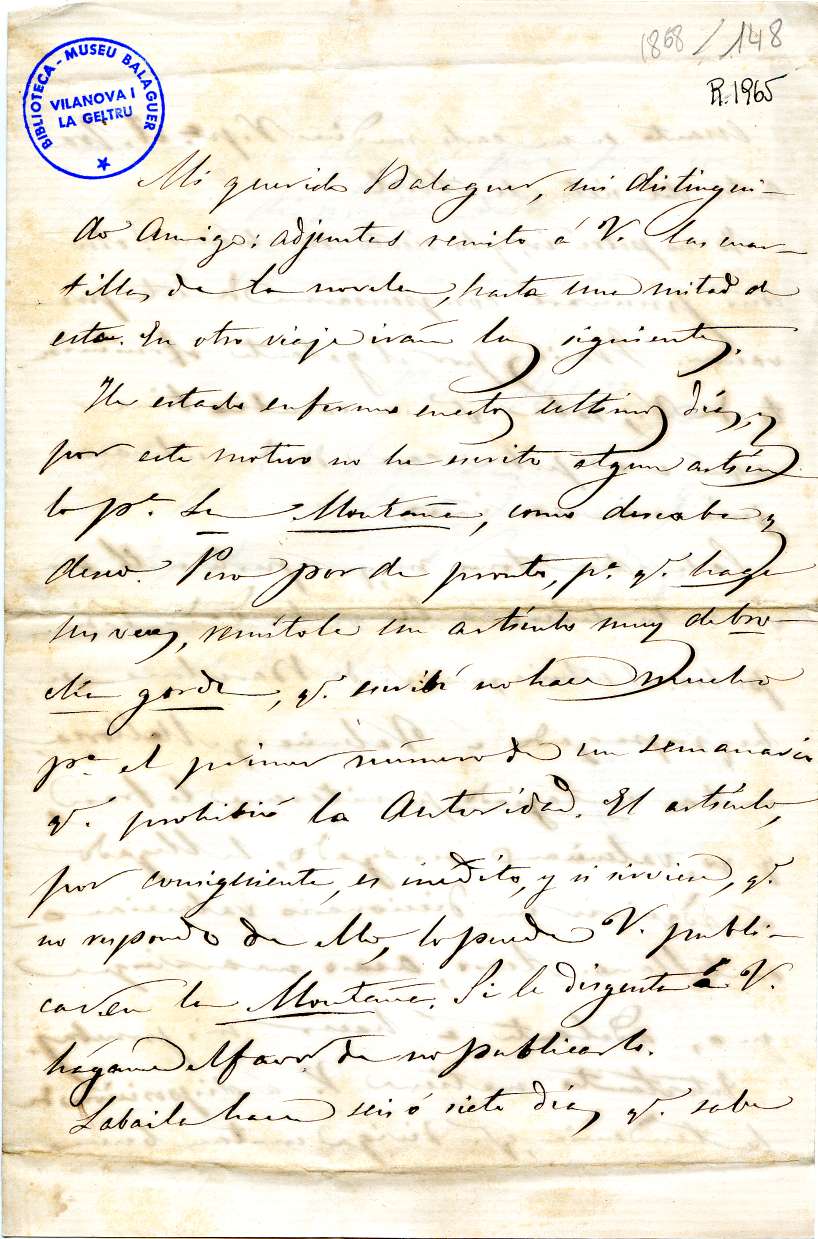 1868/148
R.1965
BIBLIOTECA - MUSEU BALAGUER
VILANOVA I
LA GELTRU
Mi querido Balaguer, mi distingui-
do Amigo: adjuntas remito á V. las cuar-
tillas de la novela, hasta una mitad de
esta. En otro viaje irán las siguientes.
He estado enfermo en estos últimos días, y
por este motivo no he escrito algun artícu
lo pª. La Montaña, como deseaba y
deseo. Pero por de pronto, pª. qe. haga
sus veces, remítole un artículo muy de bro-
cha gorda, qe. escribí no hace mucho
pª el primer número de un semanario
qe. prohibió la Autoridad. El artículo,
por consiguiente, es inédito, y si sirviese, qe.
no respondo de ello, lo puede V. publi-
car en la Montaña. Si le disgusta á V.
hágame el favor de no publicarlo.
Labaila hace seis ó siete días qe. sabe